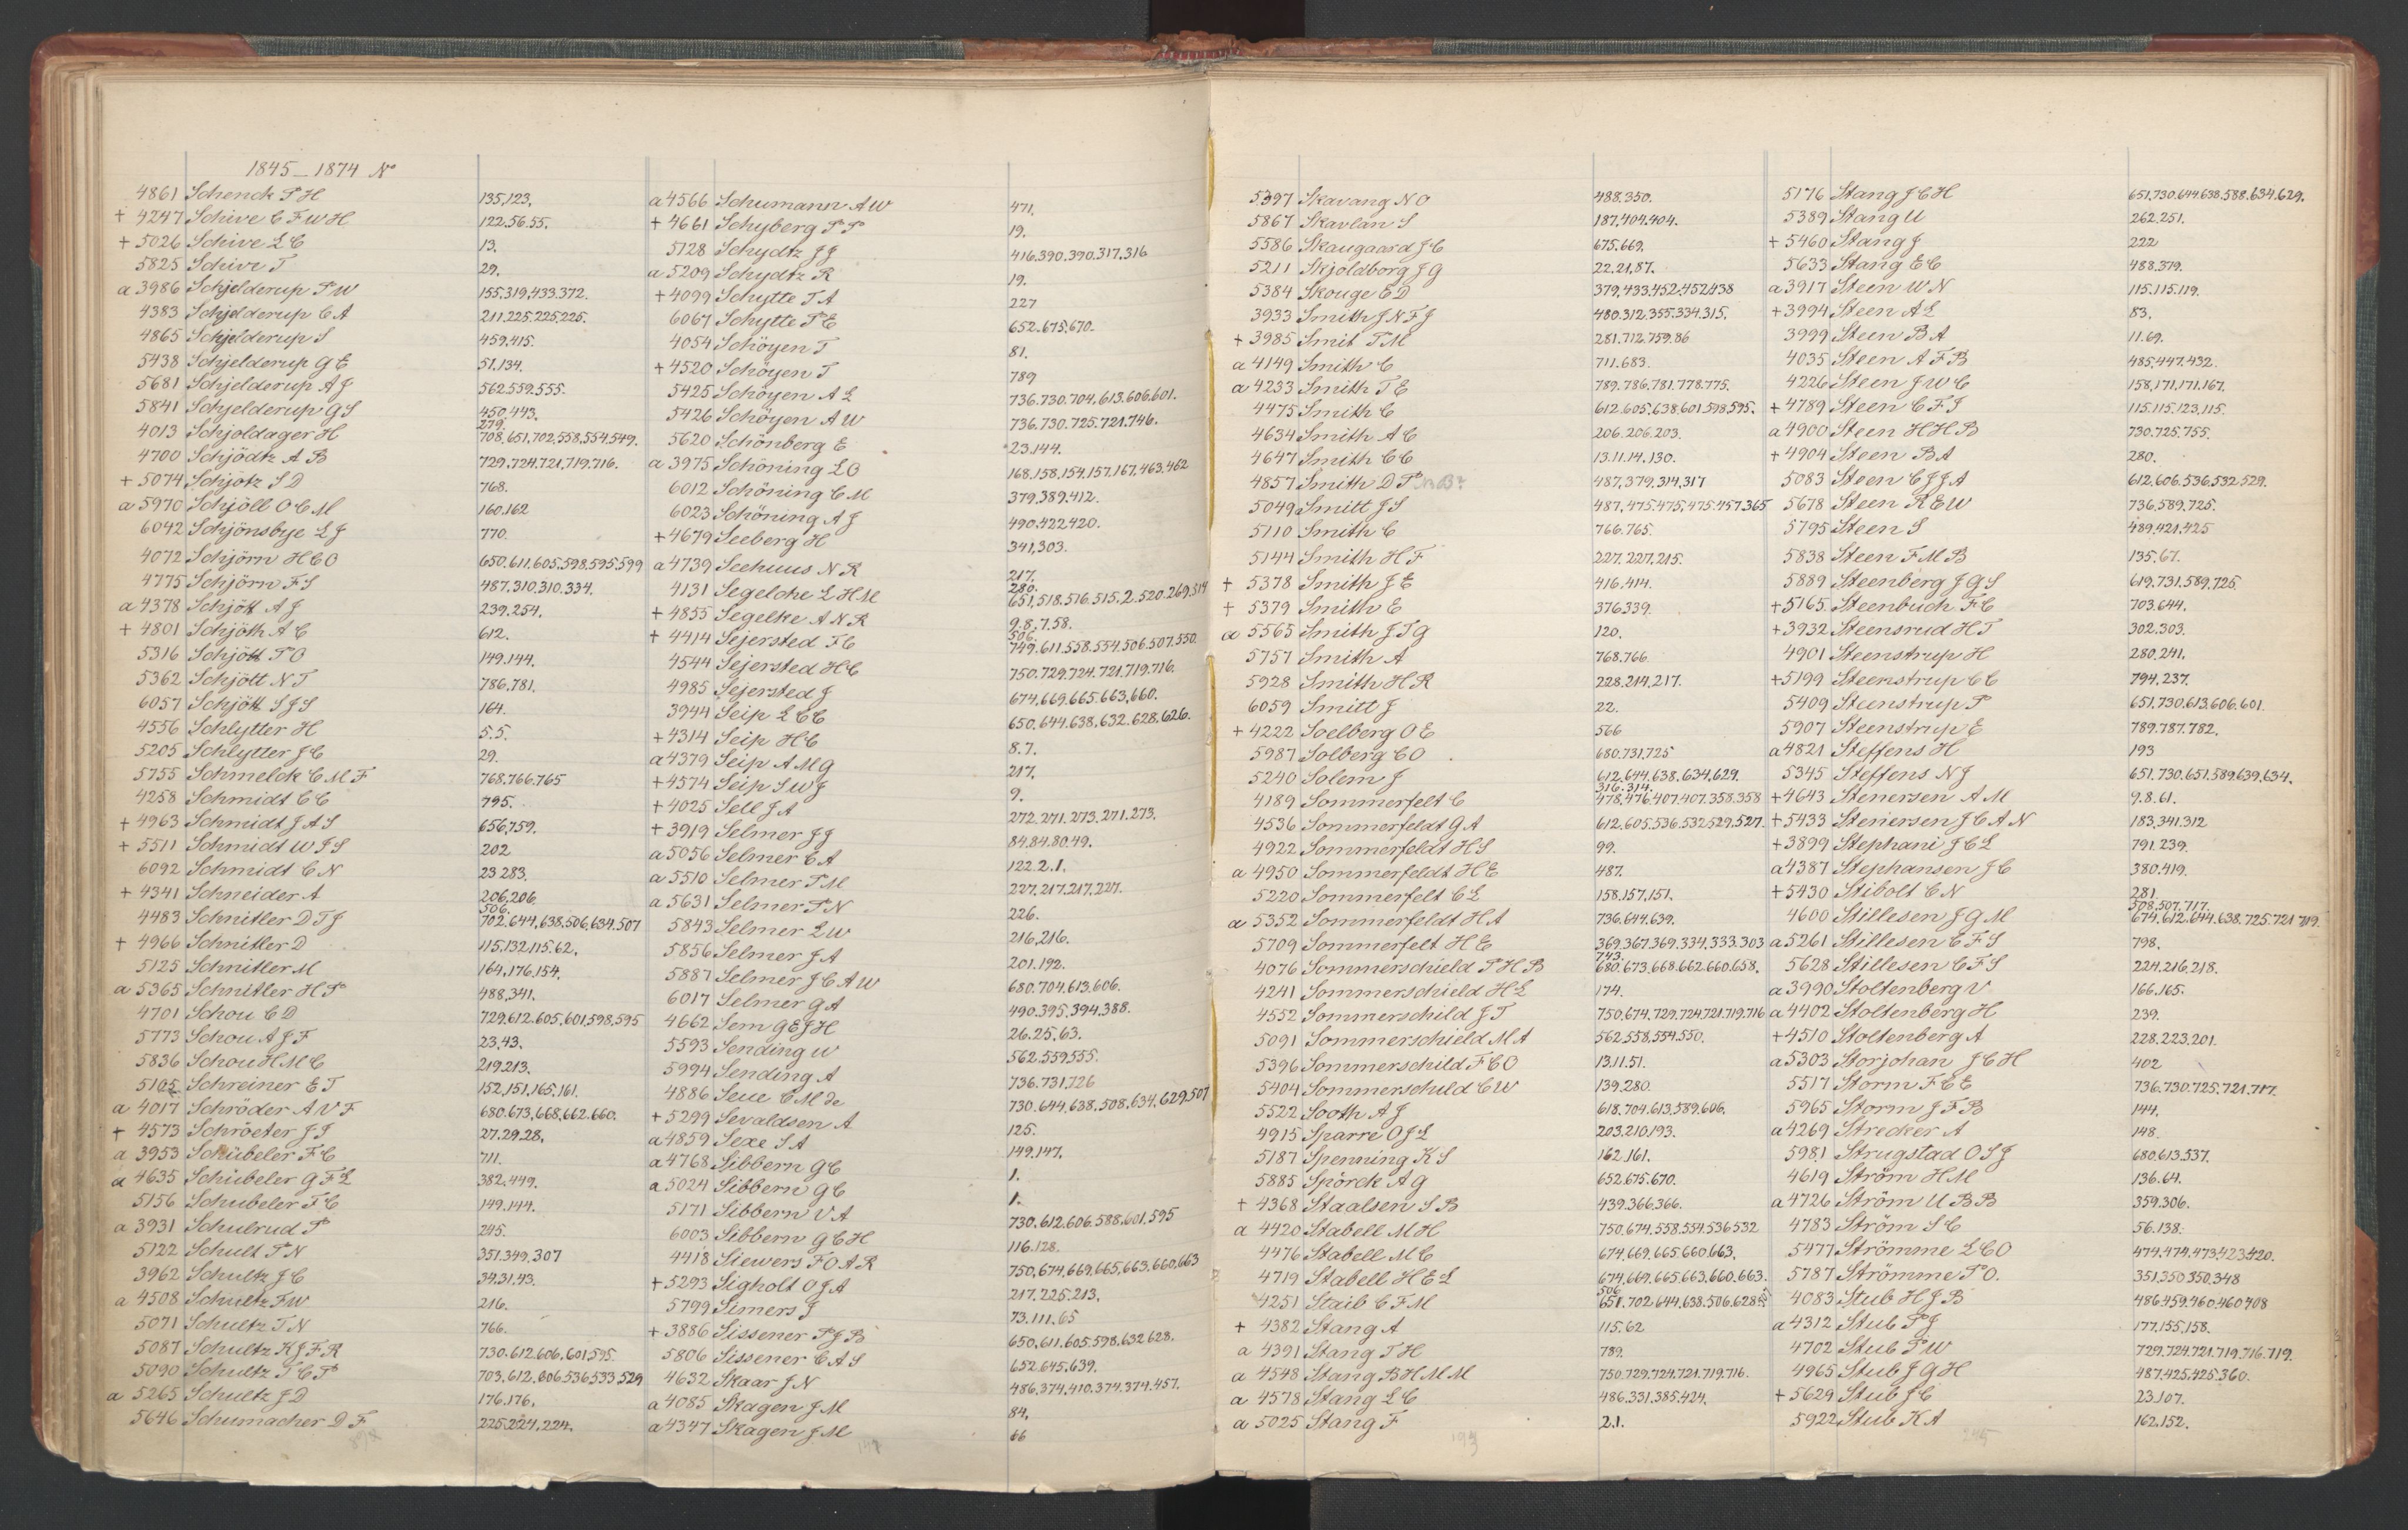 1845–1874 No
4861 Schenck P H 135,123.
+ 4247 Schive C F W H 122.56.55.
+ 5026 Schive L C 13.
5825 Schive T 29.
a 3986 Schjelderup P W 155.319.433.372.
4383 Schjelderup C A 211.225.225.225.
4865 Schjelderup S 459.415.
5438 Schjelderup G E 51.134.
5681 Schjelderup A J 562.559.555.
5841 Schjelderup G S 450.443.
279.
4013 Schjoldager H 708,651,702,558,554,549.
4700 Schjödtz A B 729.724.721.719.716.
+ 5074 Schjötz S D 768.
a 5970 Schjöll O C M 160.162
6042 Schjönsbye L J 770.
4072 Schjörn H C O 650.611.605.598.595.599
4775 Schjörn F S 487,310.310.334.
a 4378 Schjött A J 239.254.
+ 4801 Schjöth A C 612.
5316 Schjött P O 149.144.
5362 Schjött N T 786,781.
6057 Schjött S J S 164.
4556 Schlytter H 5.5.
5205 Schlytter J C 29.
5755 Schmelck C M F 768.766.765
4258 Schmidt C C 795.
+ 4963 Schmidt J A S 656,759.
+ 5511 Schmidt W J S 202
6092 Schmidt C N 23 283.
+ 4341 Schneider A 206,206.
506.
4483 Schnitler D T J 702.644,638,506,634.507
+ 4966 Schnitler D 115.132.115.62.
5125 Schnitler M 164,176,154.
a 5365 Schnitler H P 488,341.
4701 Schou C D 729,612.605,601,598,595
5773 Schou A J F 23,43.
5836 Schou H M C 219.213.
5105 Schreiner E T 152,151,165,161.
a 4017 Schröder A V F 680.673,668,662.660.
+ 4573 Schröeter J J 27.29.28.
a 3953 Schübeler F C 711.
a 4635 Schübeler G F L 382.449.
5156 Schubeler F C 149.144.
a 3931 Schulrud P 245.
5122 Schult P N 351.349.307
3962 Schultz J C 34.31.43.
a 4508 Schultz F W 216.
5071 Schultz T N 766.
5087 Schultz K J F R 730.612.606,601,595.
5090 Schultz T C P 703,612.606536533.529
a 5265 Schultz J D 176.176.
5646 Schumacher D F 225.224.224.
a 4566 Schumann A W 471.
+ 4661 Schyberg P P 19.
5128 Schydtz J J 416.390.390.317.316
a 5209 Schydtz R 19.
+ 4099 Schytte T A 227
6067 Schytte P E 652.675,670.
4054 Schöyen T 81.
+ 4520 Schöyen T 789
5425 Schöyen A L 736.730.704,613.606,601.
5426 Schöyen A W 736.730.725.721.746.
5620 Schönberg E 23.144.
a 3975 Schöning L O 168.158.154.157,167,463,462
6012 Schöning C M 379,389.412.
6023 Schöning A J 490.422.420.
+ 4679 Seeberg H 341,303.
a 4739 Seehuus N R 217.
280.
4131 Segelcke L H M 651,518.516.515.2.520.269,514
+ 4855 Segelke A N R 9.8.7.58.
506.
+ 4414 Sejersted F C 749.611.558.554.506.507.550.
4544 Sejersted H C 750.729.724.721.719.716.
4985 Sejersted J 674,669.665.663,660.
3944 Seip L C C 650,644.638,632.628.626.
+ 4314 Seip H C 8.7.
a 4379 Seip A M G 217.
+ 4574 Seip S W J 9.
+ 4025 Sell J A 272.271.273.271.273.
+ 3919 Selmer J J 84.84.80.49.
a 5056 Selmer C A 122.2.1.
a 5510 Selmer P M 227.217.217.227.
a 5631 Selmer P N 226.
5843 Selmer L W 216,216.
5856 Selmer J A 201.192.
5887 Selmer J C A W 680.704.613.606.
6017 Selmer G A 490.395.394.388.
4662 Sem G E J H 26.25.63.
5593 Sending W 562.559.555.
5994 Sending A 736.731.726
4886 Seue C M de 730.644.638.508.634.629.507
+ 5299 Sevaldsen A 125.
a 4859 Sexe S A 149.147.
a 4768 Sibbern G C 1.
a 5024 Sibbern G C 1.
5171 Sibbern V A 730.612.606.588.601.595
6003 Sibbern G C H 116.128.
4418 Siewers F O A R 750,674,669.665,663.660.663
+ 5293 Sigholt O J A 217.225.213.
5799 Simers J 73.111.65
+ 3886 Sissener P J B 650,611.605.598.632.628.
5806 Sissener C A S 652.645.639.
4632 Skaar J N 486,374,410.374.374.457.
a 4085 Skagen J M 84.
a 4347 Skagen J M 66
5397 Skavang N O 488.350.
5867 Skavlan S 187,404.404.
5586 Skaugaard J C 675.669.
5211 Skjöldborg J G 22.21.87.
5384 Skouge E D 379,433.452.452.438
3933 Smith J N F J 480.312.355.334.315.
+ 3985 Smit T M 281.712.759.86
a 4149 Smith C 711.683.
a 4233 Smith T E 789.786.781.778.775.
4475 Smith C 612.605.638.601.598.595.
4634 Smith A C 206.206.203.
4647 Smith C C 13.11.14.130.
4857 Smith D P 487,379,314,317
5049 Smitt J S 487,475.475,475.457.365
5110 Smith C 766.765.
5144 Smith H F 227.227.215.
+ 5378 Smith J E 416.414.
+ 5379 Smith E 376339.
a 5565 Smith J T G 120.
5757 Smith A 768.766.
5928 Smith H R 228.214.217.
6059 Smitt J 22.
+ 4222 Soelberg O E 566
5987 Solberg C O 680.731.725
5240 Solem J 612.644.638.634.629.
316.314.
4189 Sommerfelt C 478,476.407.407.358.358
4536 Sommerfeldt G A 612.605.536.532.529.527.
4922 Sommerfeldt H S 99.
a 4950 Sommerfeldt H E 487.
5220 Sommerfelt C L 158.157.151.
a 5352 Sommerfeldt H A 736.644.639.
5709 Sommerfelt H E 369.367.369.334.333.303
743.
4076 Sommerschield P H B 680.673.668.662.660.658.
4241 Sommerschield H L 174.
4552 Sommerschild J T 750,674.729.724.721.719.716
5091 Sommerschield M A 562.558.554.550.
5396 Sommerschild F C O 13.11.51.
5404 Sommerschild C W 139.280.
5522 Sooth A J 618.704.613.589.606.
4915 Sparre O J L 203.210.193.
5187 Spenning K S 162.161.
5885 Spörck A G 652.675.670.
+ 4368 Staalsen S B 439.366.366.
a 4420 Stabell M H 750.674.558.554.536532
4476 Stabell M C 674.669.665.660.663.
4719 Stabell H E L 674,669.665.663.660.663.
506
4251 Staib C F M 651.702.644.638.506.628
+ 4382 Stang A 115.62
a 4391 Stang T H 789.
a 4548 Stang B H M M 750.729.724.721.719.716.
a 4578 Stang L C 486.331.385.424.
a 5025 Stang F 2.1.
5176 Stang J C H 651,730.644.638.588.634.629.
5389 Stang U 262.251.
+ 5460 Stang J 222
5633 Stang E C 488.379.
a 3917 Steen W N 115.115.119.
+ 3994 Steen A L 83.
3999 Steen B A 11.69.
4035 Steen A F B 485,447.432.
4226 Steen J W C 158,171,171.167.
+ 4789 Steen C F J 115.115.123,115.
a 4900 Steen H H B 730.725.755.
+ 4904 Steen B A 280.
5083 Steen C J J A 612,606.536,532.529.
5678 Steen R E W 736,589.725.
5795 Steen S 489,421,425
5838 Steen F M B 135.67.
5889 Steenberg J G S 619.731.589,725.
+ 5165 Steenbuch F C 703.644.
+ 3932 Steensrud H T 302.303.
4901 Steenstrup H 280.241.
+ 5199 Steenstrup C C 794.237.
5409 Steenstrup P 651,730.613.606.601.
5907 Steenstrup E 789.787.782.
a 4821 Steffens H 193
5345 Steffens N J 651.730.651.589.639.634.
+ 4643 Stenersen A M 9.8.61.
+ 5433 Stenersen J C A N 183,341.312
+ 3899 Stephani J C L 791.239.
a 4387 Stephansen J C 380.419.
+ 5430 Stibolt C N 281.
508.507.717.
4600 Stillesen J G M 674,612.644.638.725.721 719.
a 5261 Stillesen C F S 798.
5628 Stillesen C F S 224.216.218.
a 3990 Stoltenberg V 166.165.
a 4402 Stoltenberg H 239.
+ 4510 Stoltenberg A 228.223.201.
a 5303 Storjohan J C H 402
5517 Storm F C E 736.730.725.721.717.
5965 Storm J F B 144.
a 4269 Strecker A 148.
5981 Strugstad O S J 680.613.537.
4619 Ström H M 136.64.
a 4726 Ström U B B 359.306.
4783 Ström S C 56.138.
5477 Strömme L C O 474.474.473.423.420.
5787 Strömme P O. 351,350 350.348
4083 Stub H J B 486.459.460.460.408
a 4312 Stub P J 177,155.158.
4702 Stub P W 729.724.721.719.716.719.
4965 Stub J G H 487.425.425.360.
+ 5629 Stub J C 23.107.
5922 Stub K A 162.152.